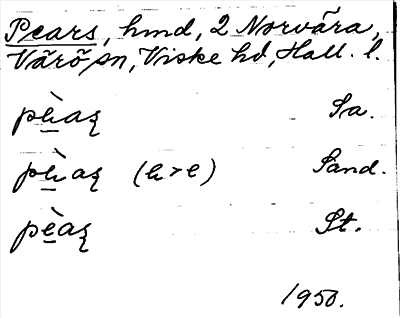 Pears, hmd, 2 Norvära,
Värö sn, Viske hd, Hall. l.
pèaꞩ Sa.
pèaꞩ (e > e) Sand.
pèaꞩ St.
1950.